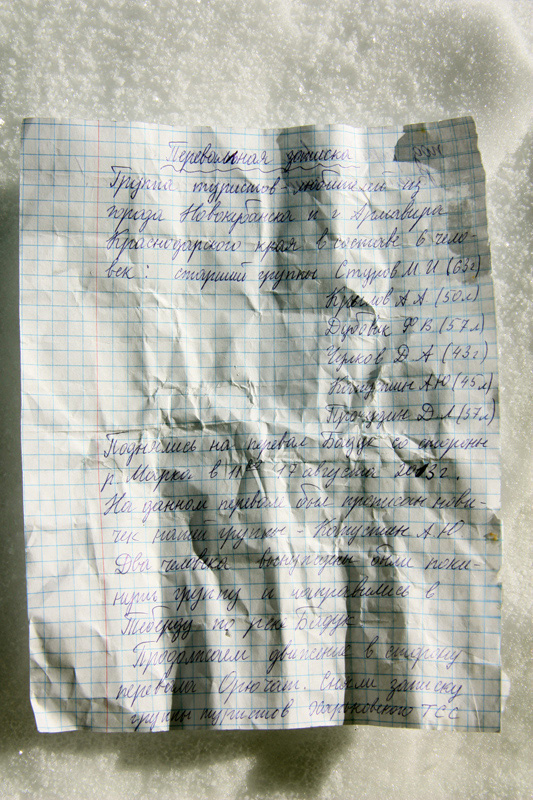 Перевальная записка
Группа туристов-любителей из
города Новокубанска и г Армавира
Краснодарского края в составе 6 чело-
век: старший группы М И (63г)
А А (50л)
Ф В (57л)
Д А (43г)
Капустин А Ю (45л)
Д Л (37л)
Поднялись на перевал Бадук со стороны
р. Марка в 11 17 августа 2013г.
На данном перевале был прописан нови-
чек нашей группы - Капустин А Ю
Два человека вынуждены были поки-
нуть группу и направились в
Теберду по реке Бадук
Продолжаем движение в сторону
перевала Орючат. Сняли записку
группы туристов Харьковского ТСС